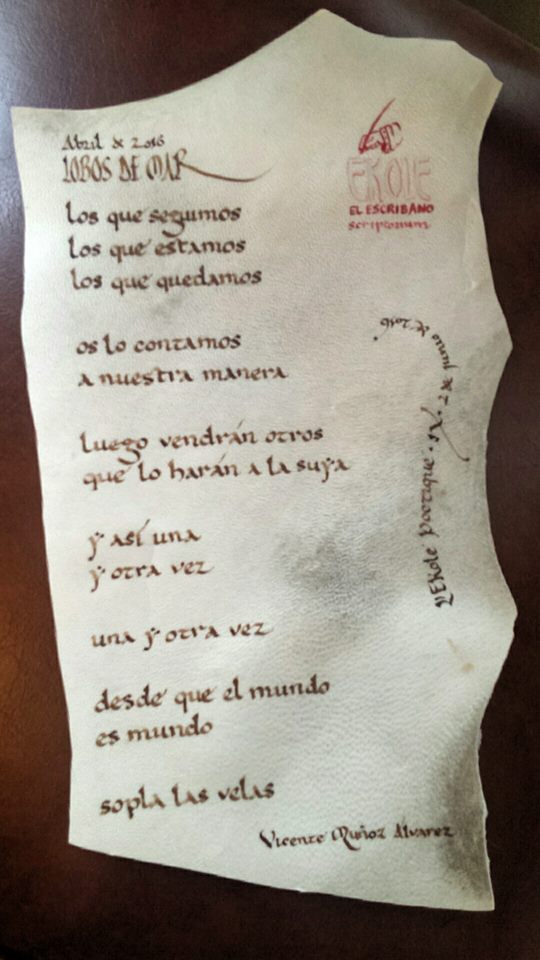 Abril de 2016
LOBOS DE MAR
EKOLE
EL ESCRIBANO
scriptorium
los que seguimos
los que estamos
los que quedamos
os lo contamos
a nuestra manera
luego vendrán otros
que lo harán a la suya
y así una
y otra vez
una y otra vez
desde que el mundo
es mundo
sopla las velas
Vicente Muñoz Alvarez
L'EKole Poetique
2 de junio de 2016